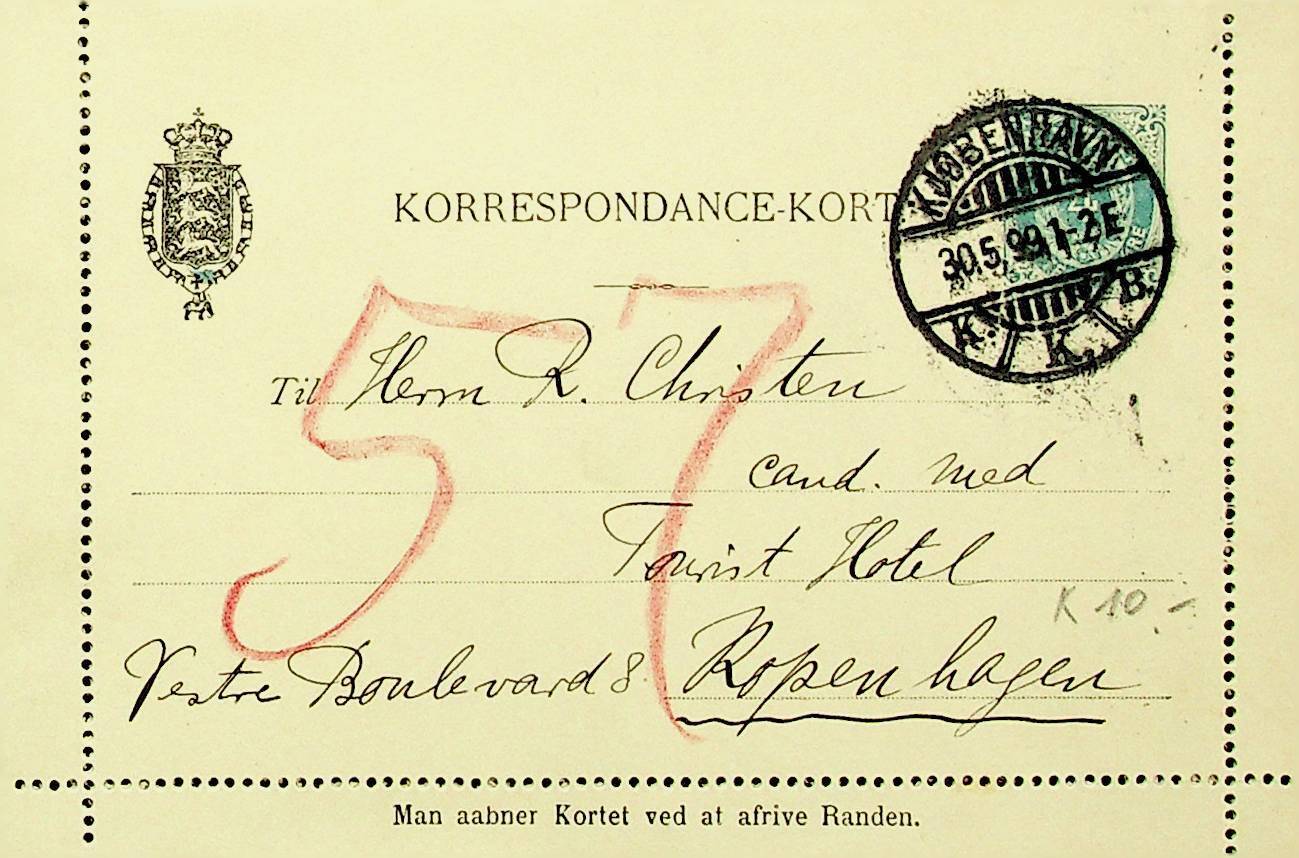 KORRESPONDANCE-KORT
KJØBENHAVN
30.5.99.1-2E
K. K. B.
4
ØRE
57
Til Herrn R. Christen
cand. med
Tourist Hotel
K 10.-
Vestre Boulevard 8. Kopenhagen
Man aabner Kortet ved at afrive Randen.